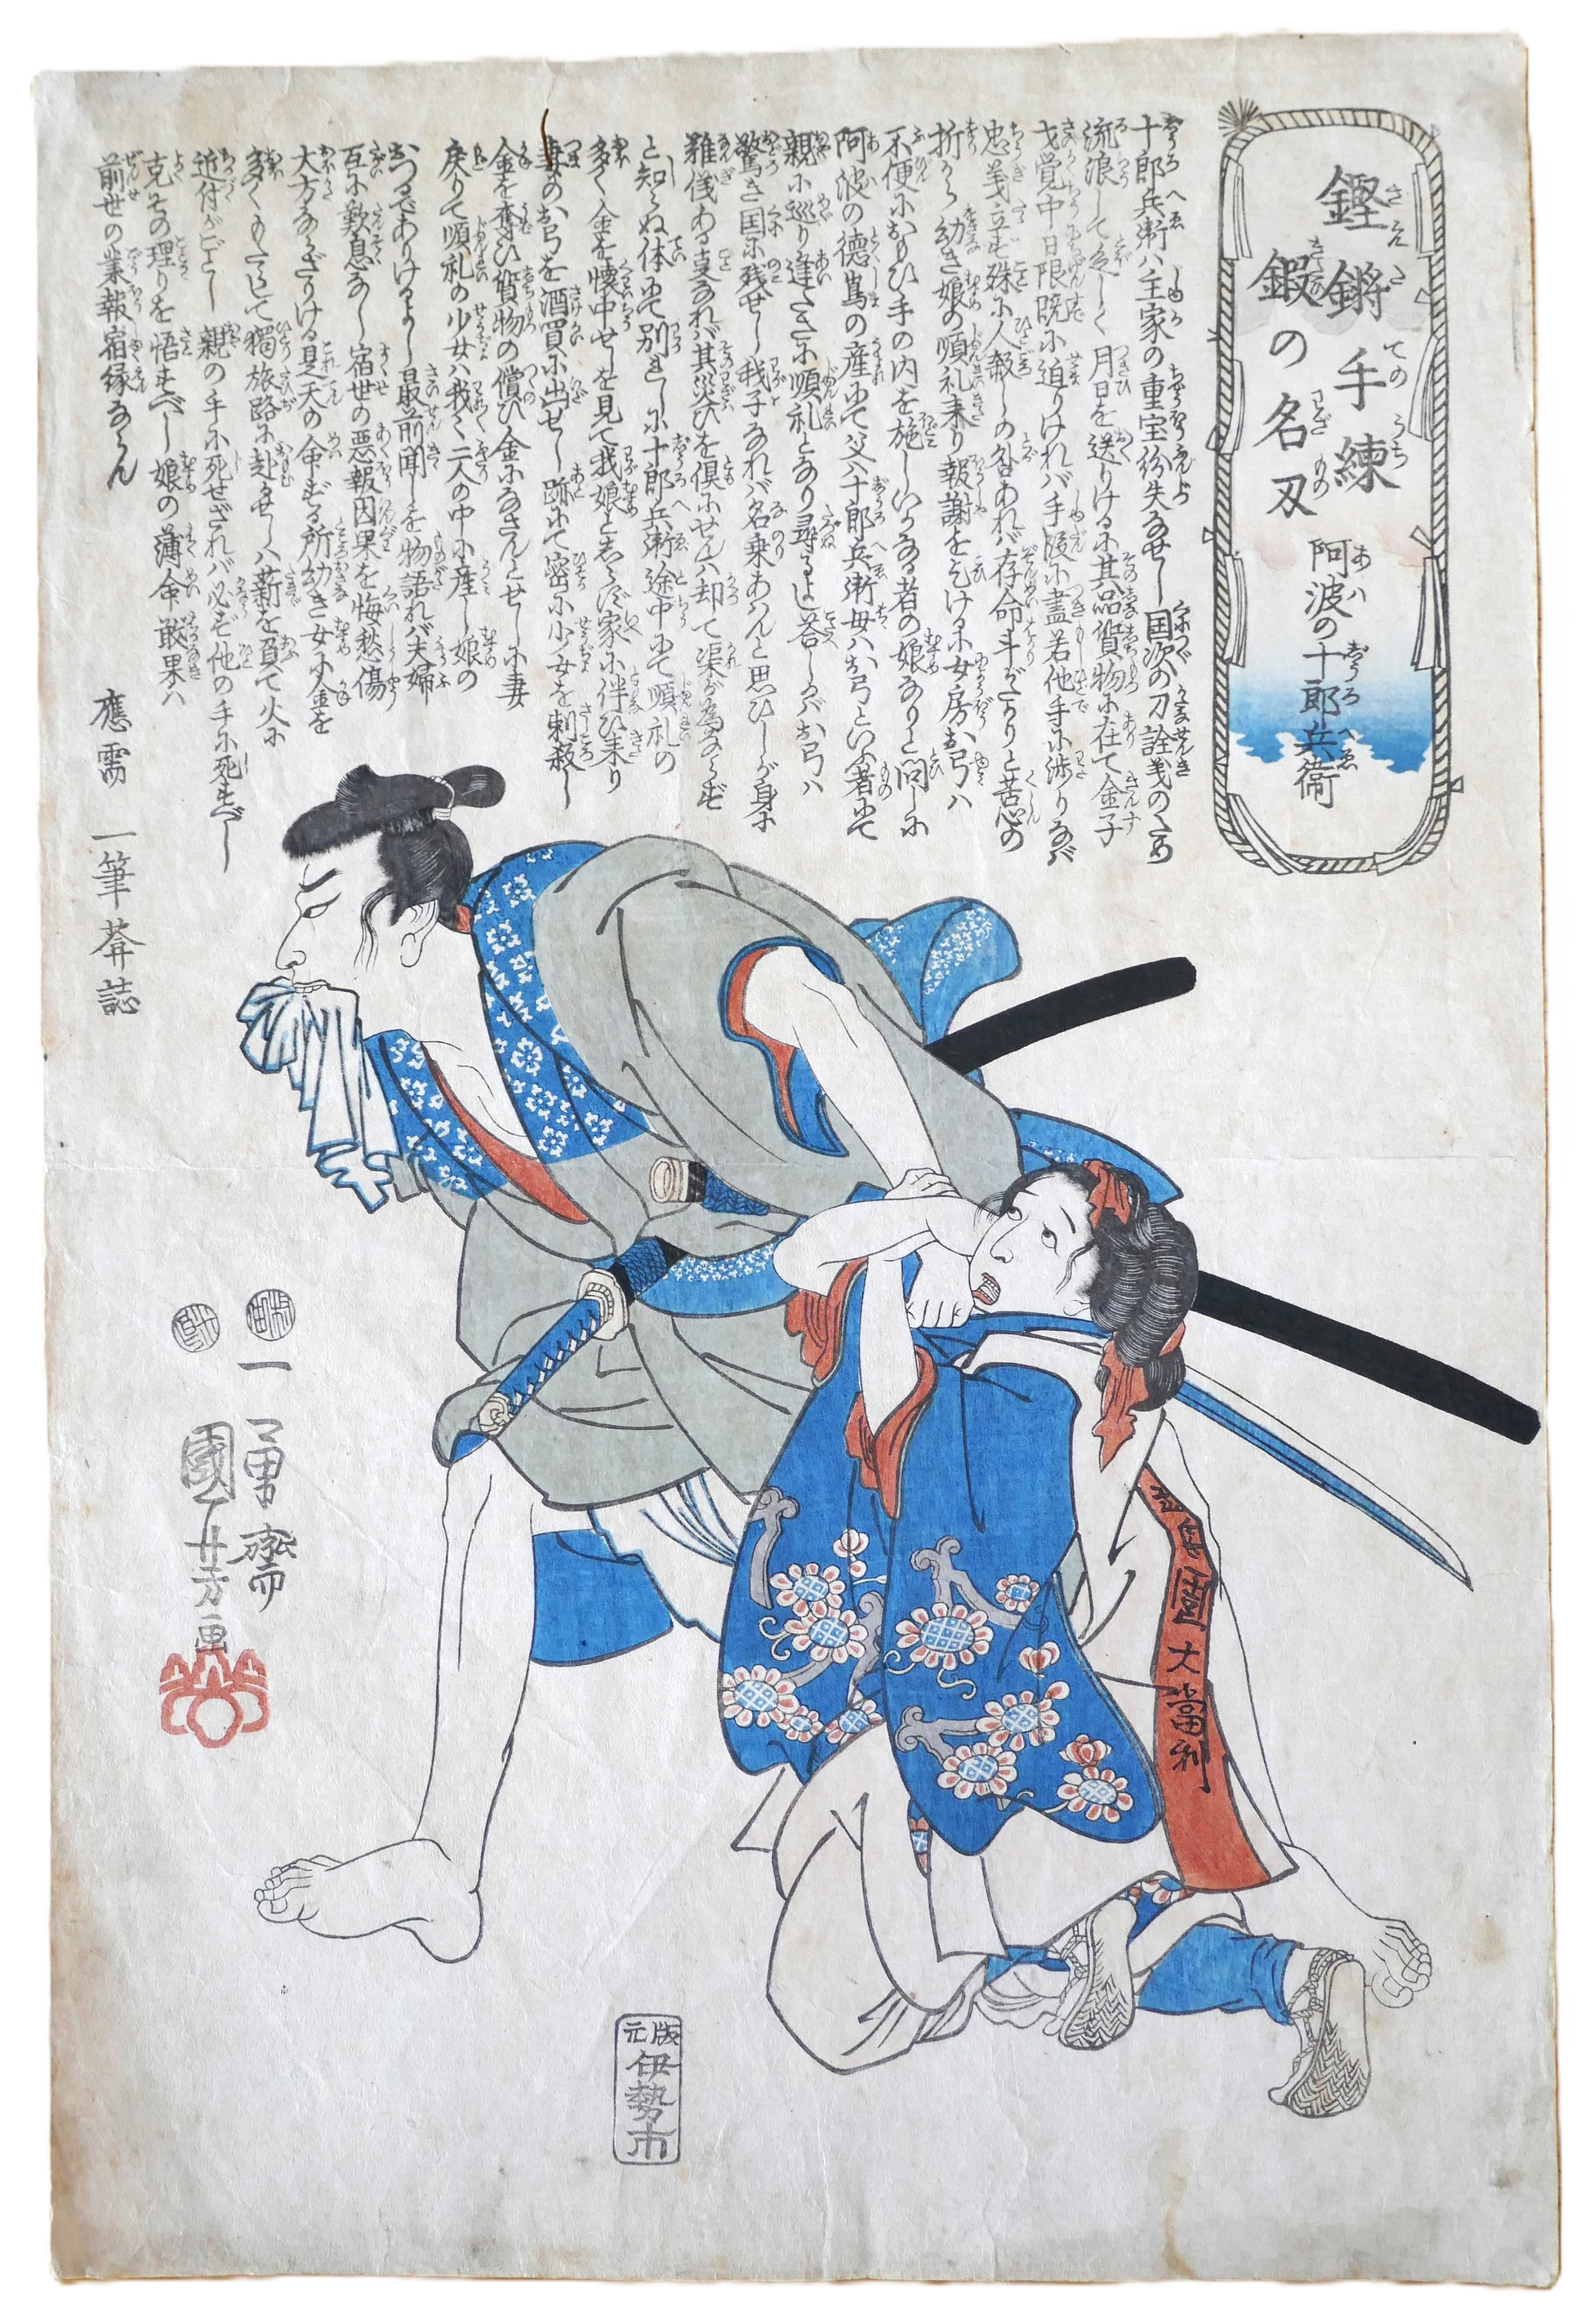 鏗鏘手練
鍛の名刃
阿波の十郎兵衛
十郎兵衛ハ主家の重宝紛失なせし国次の刀詮義のため
流浪して空しく月日を送りけるに其品質物に在て金子
才覚中日限既に迫りけれバ手段に盡若他手に渉りなバ
忠義立ず殊に人殺しの咎あれバ存命斗がたりと苦心の
折から幼き娘の順礼来り報謝を乞ける に女房お弓ハ
不便におもひ手の内を施しいかなる者の娘なりと問しに
阿波の徳嶌の産にて父ハ十郎兵衛母ハお弓といふ者にて
親に巡り逢たさに順礼となり尋るよし答しかバお弓ハ
驚き国に残せし我子なれバ名乗あハんと思ひしが身に
難儀ある支なれバ其災ひを倶にせんハ却て渠が為ならず
と知らぬ体にて別れしに十郎兵衛途中にて順礼の
多く金を懐中せしを見て我娘としらず家に伴ひ来り
妻のお弓を酒買に出せし跡にて密に少女を刺殺し
金を奪ひ質物の償ひ金になさんとせしに妻
戻りて順礼の少女ハ我々二人の中に産し娘の
おつるでありけるよし最前聞しを物語れバ夫婦
互に歎息なし宿世の悪報因果を悔愁傷
大方ならざりける是天の命ずる所幼き女に金を
多くもたして獨旅路に赴せしハ薪を負て火に
近付がごとし親の手に死せざれバ必ず他の手に死すべし
克その理りを悟すべし娘の薄命敢果ハ
前世の業報宿縁ならん
應需 一筆葊誌
一勇齋
國芳画
西國
大當利
版元
伊勢市